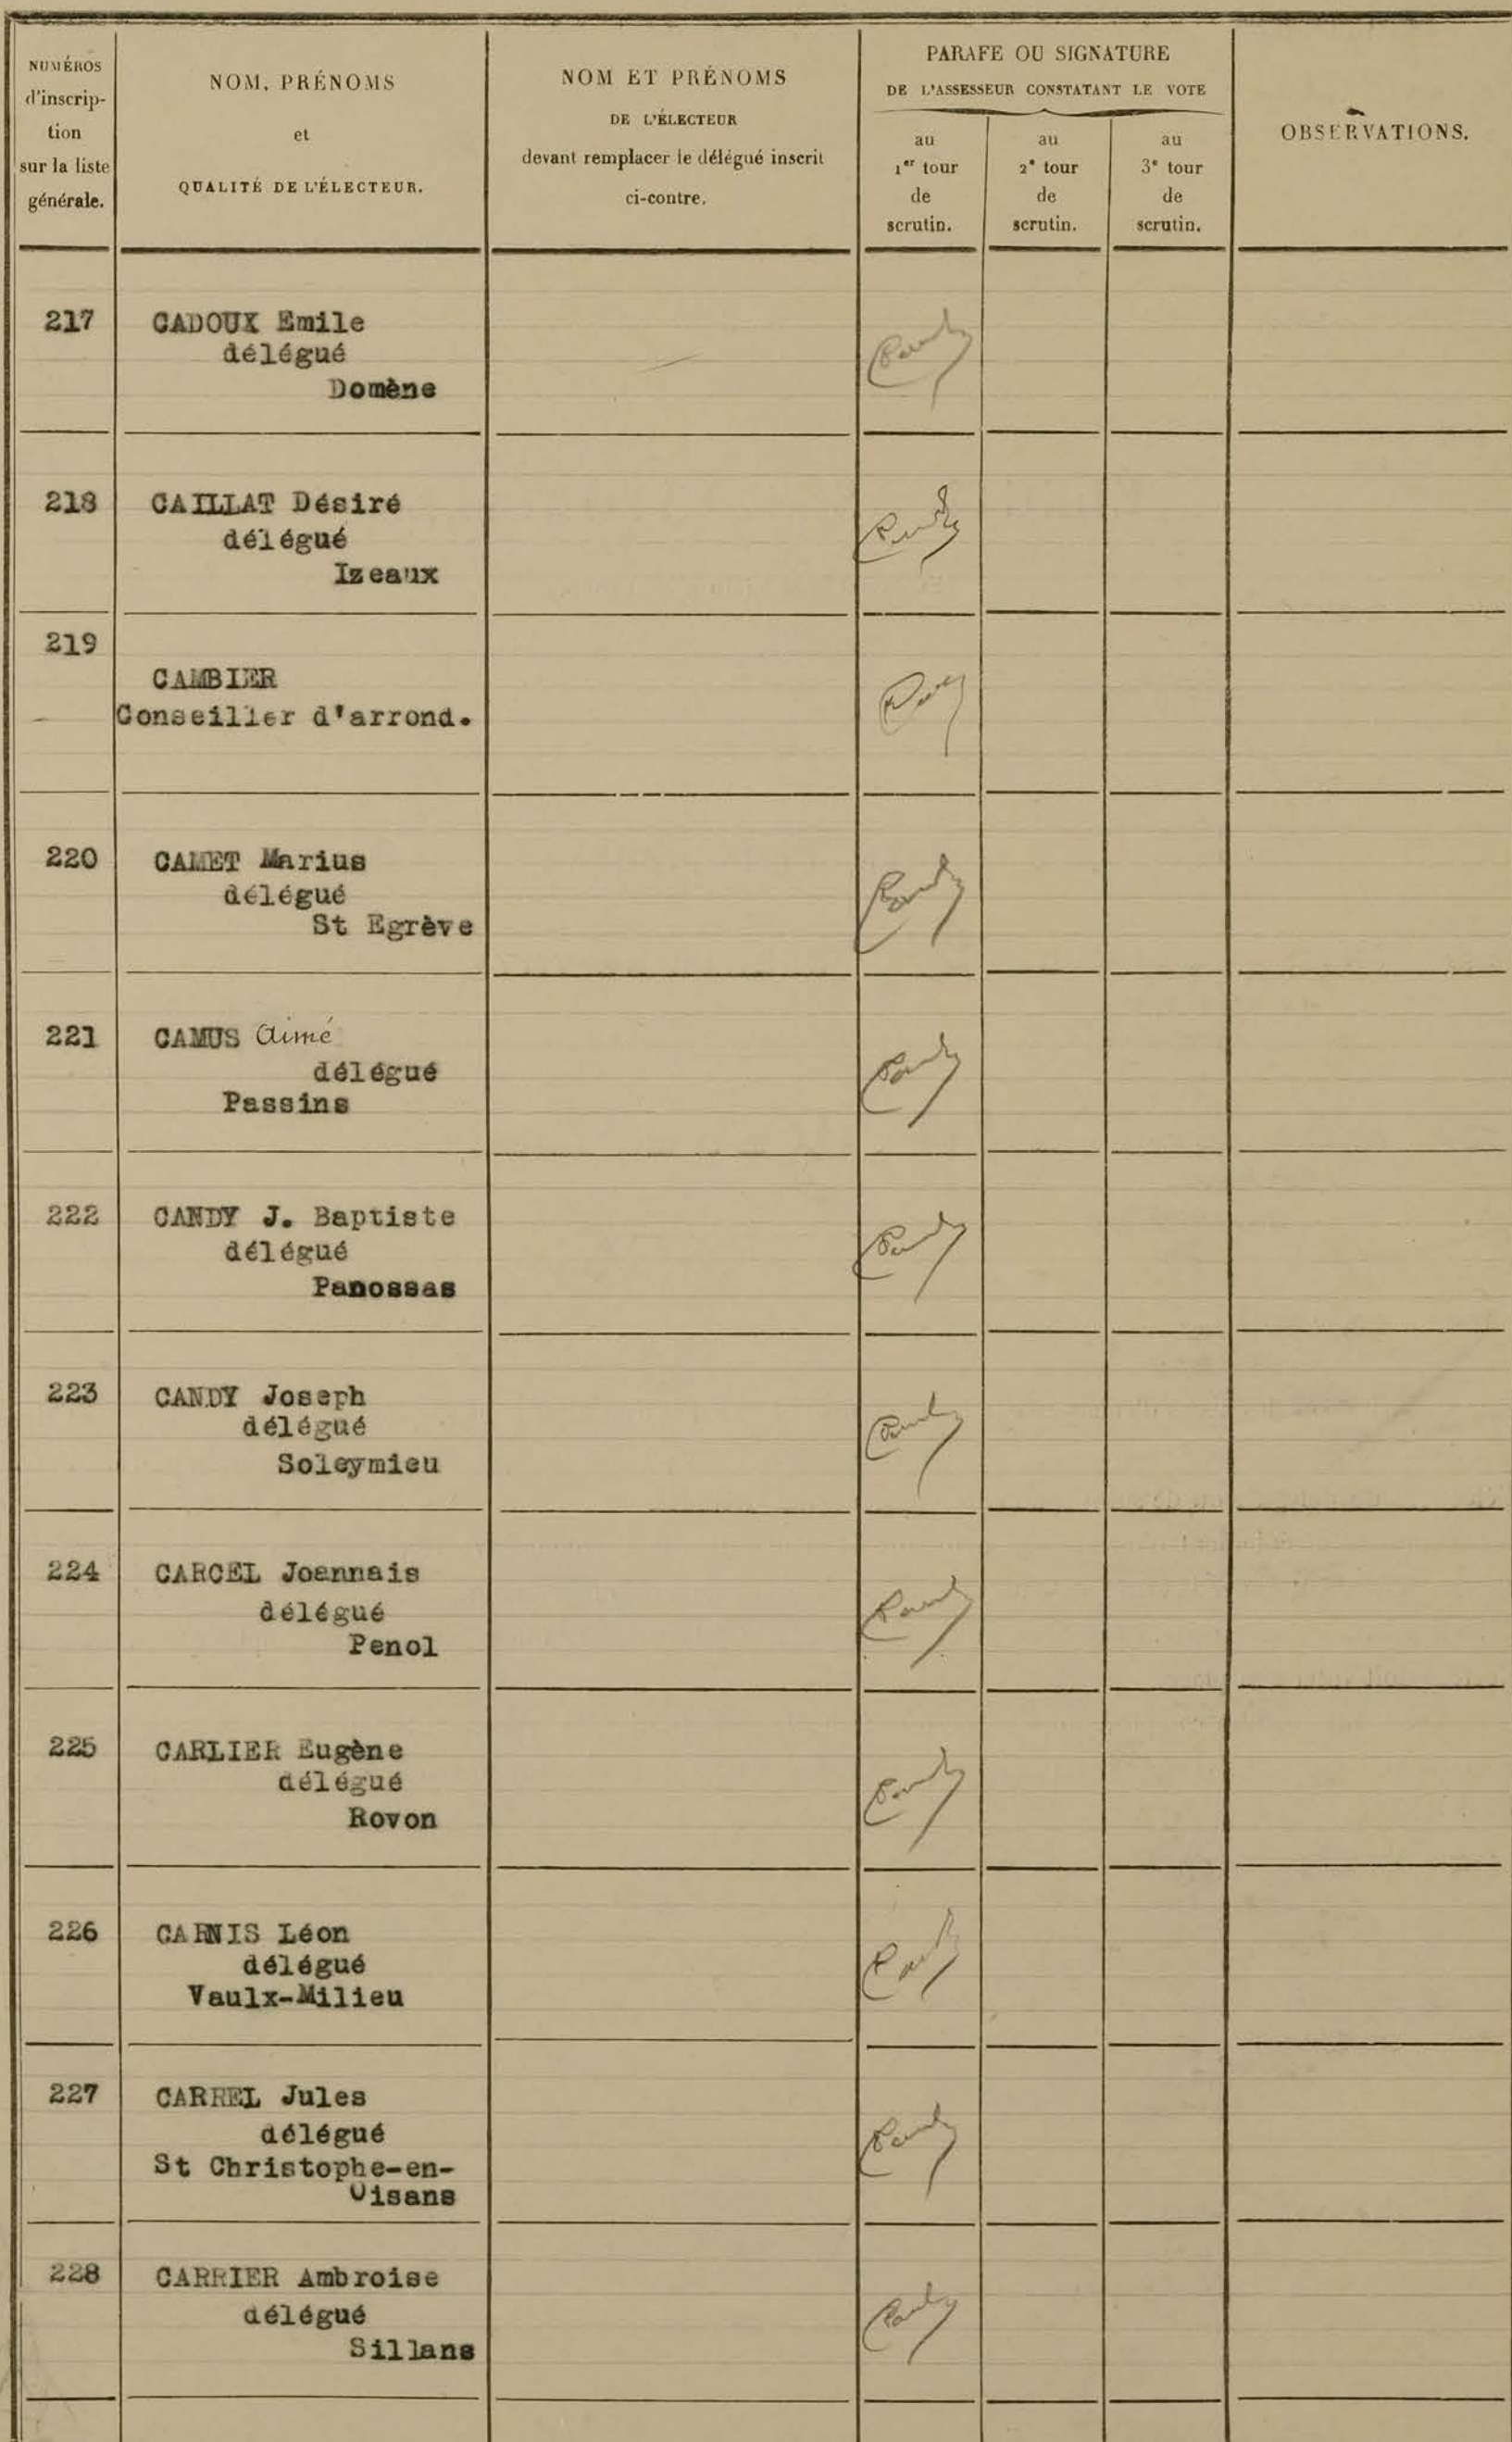 NUMÉROS
d'inscrip-
tion
sur la liste
générale.
NOM, PRÉNOMS
et
QUALITÉ DE L'ÉLECTEUR.
NOM ET PRÉNOMS
DE L'ÉLECTEUR
devant remplacer le délégué inscrit
ci-contre.
PARAFE OU SIGNATURE
DE L'ASSESSEUR CONSTATANT LE VOTE
au
1er tour
de
scrutin.
au
2e tour
de
scrutin.
au
3e tour
de
scrutin.
OBSERVATIONS.
217 CADOUX Emile
délégué
Domène
218 CAILLAT Désiré
délégué
Izeaux
219
CAMBIER
Conseiller d'arrond.
220 CAMET Marius
délégué
St Egrève
221 CAMUS Aimé
délégué
Passins
222 CANDY J. Baptiste
délégué
Panossas
223 CANDY Joseph
délégué
Soleymieu
224 CARCEL Joannais
délégué
Penol
225 CARLIER Eugène
délégué
Rovon
226 CARNIS Léon
délégué
Vaulx-Milieu
227 CARREL Jules
délégué
St Christophe-en-
Oisans
228 CARRIER Ambroise
délégué
Sillans